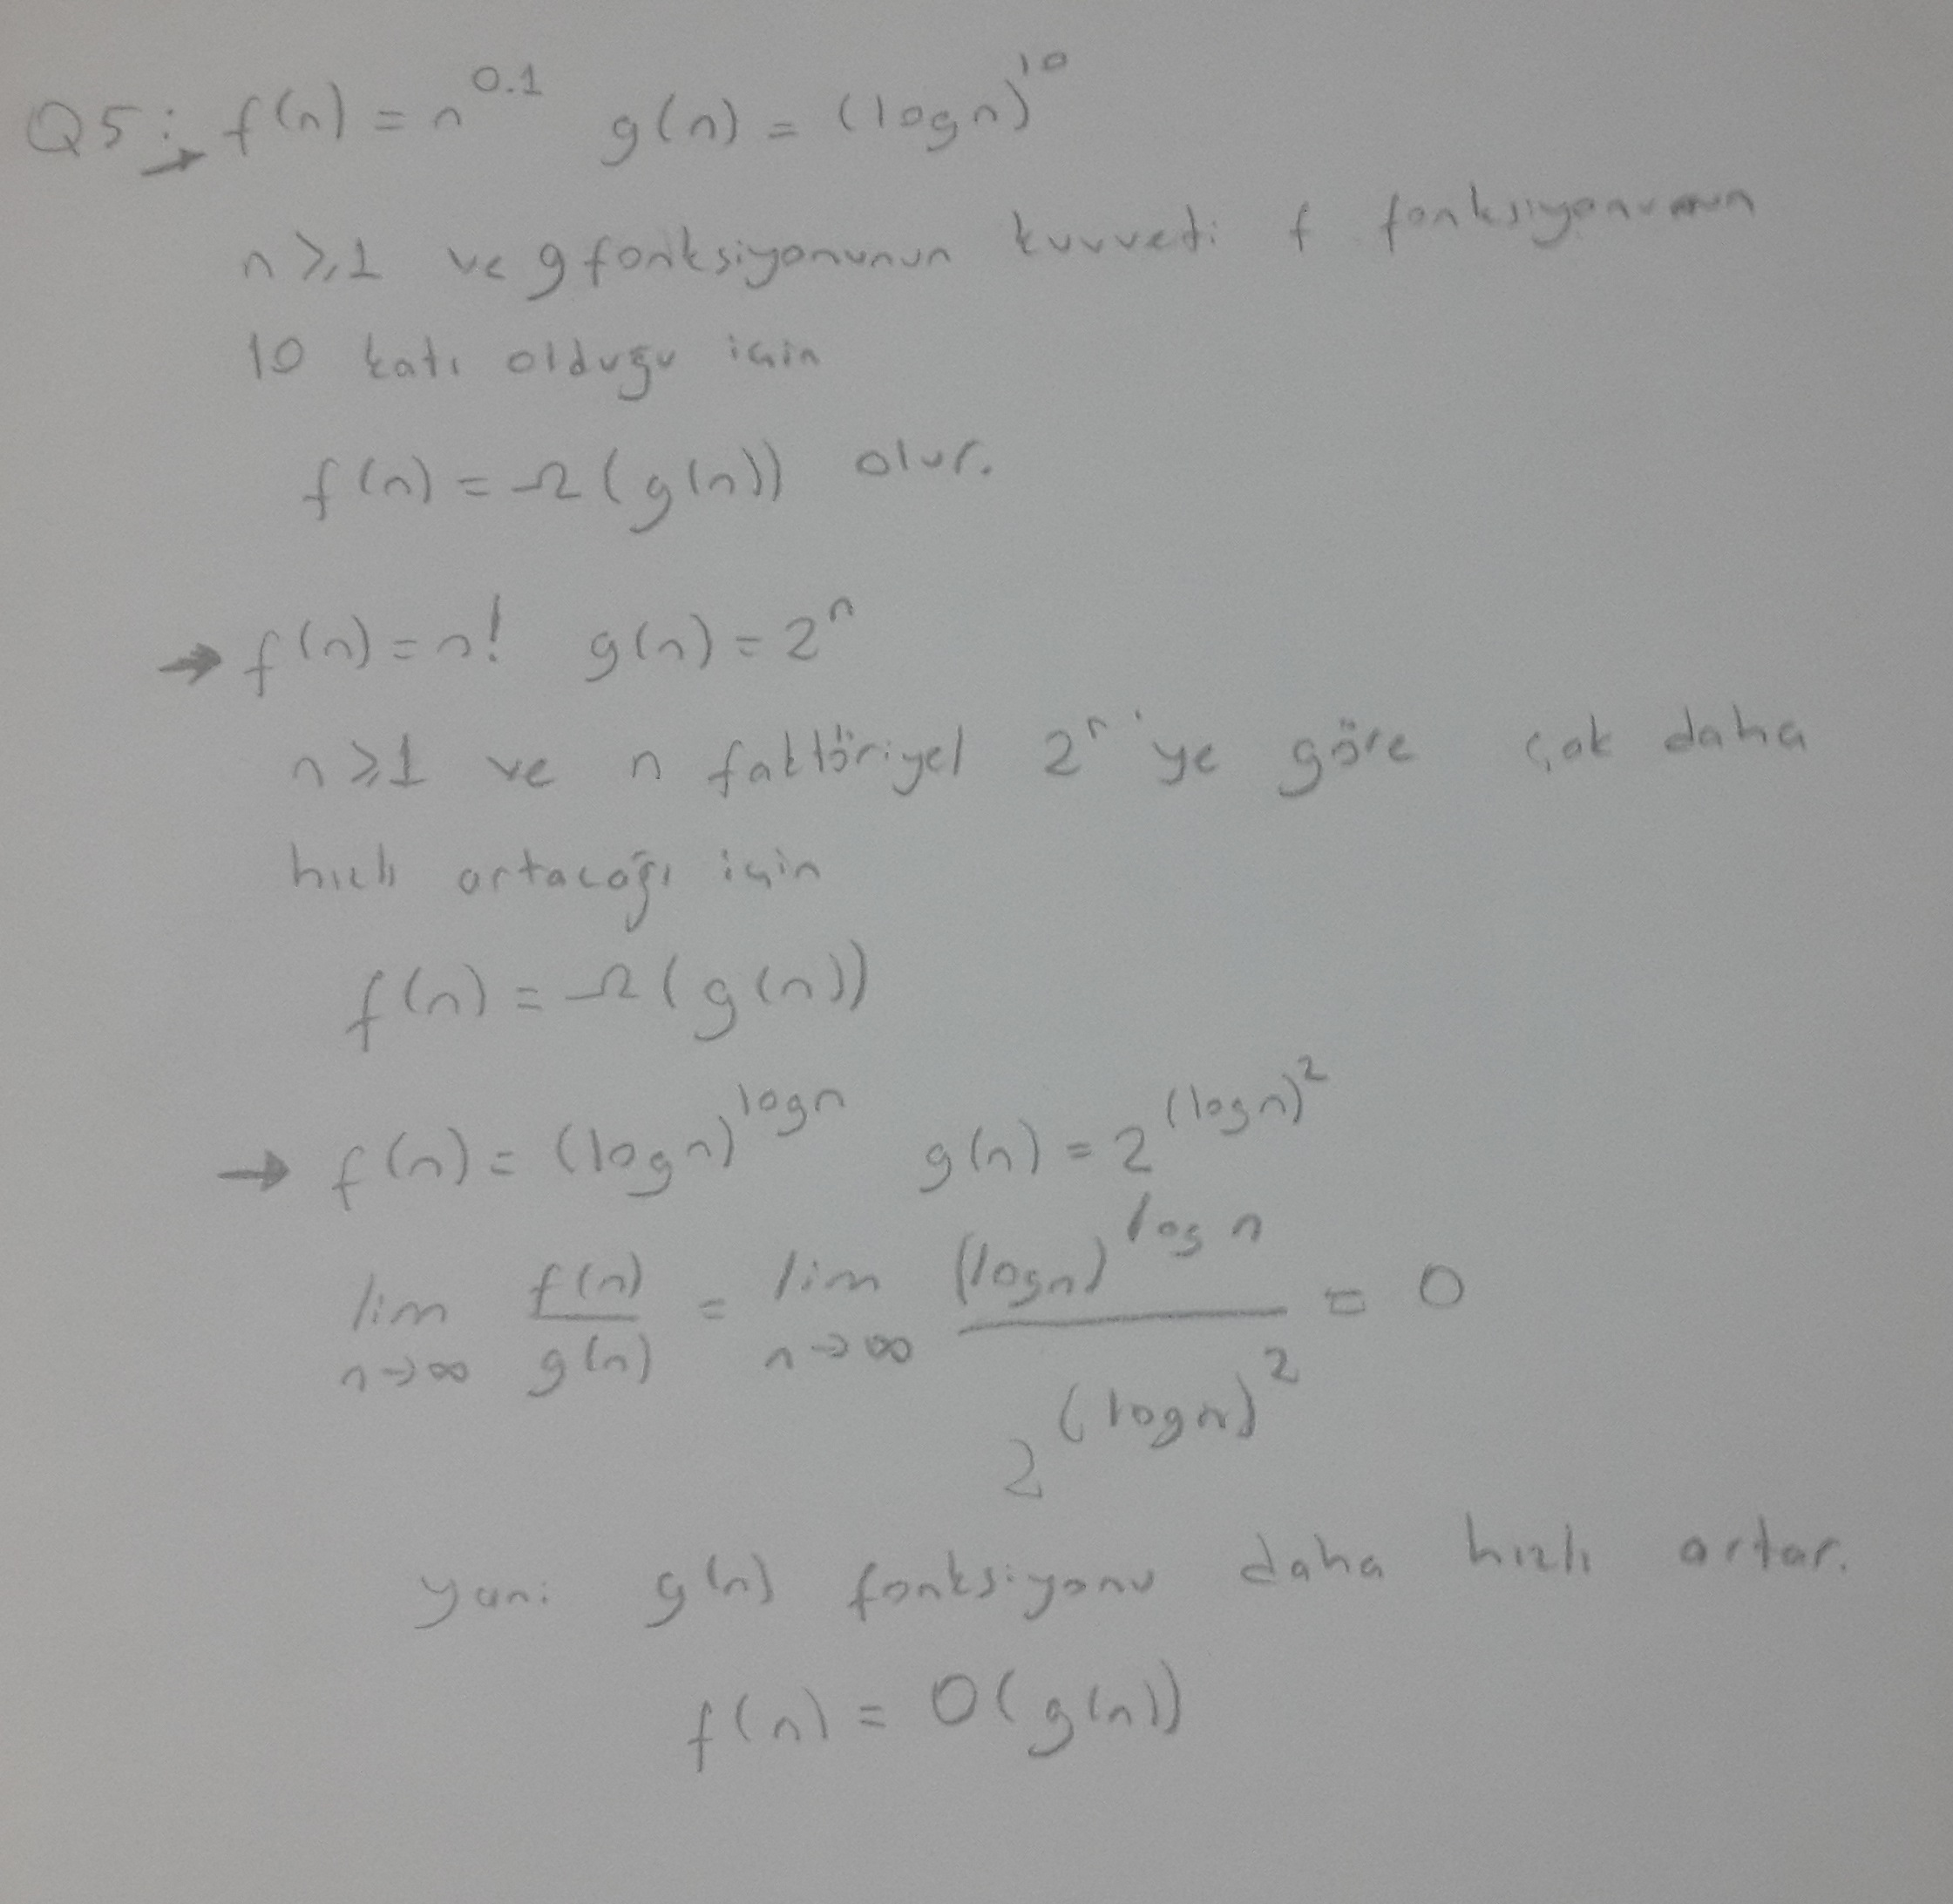 Q5: → f(n) = n^0.1 g(n) = (logn)^10
n ≥ 1 ve g fonksiyonunun kuvveti f fonksiyonunun
10 katı olduğu için
f(n) = Ω(g(n)) olur.
→ f(n) = n! g(n) = 2^n
n ≥ 1 ve n faktöriyel 2^n 'ye göre çok daha
hızlı artacağı için
f(n) = Ω(g(n))
→ f(n) = (logn)^logn g(n) = 2^(logn)^2
lim n→∞ f(n)/g(n) = lim n→∞ (logn)^logn / 2^(logn)^2 = 0
yani g(n) fonksiyonu daha hızlı artar.
f(n) = O(g(n))